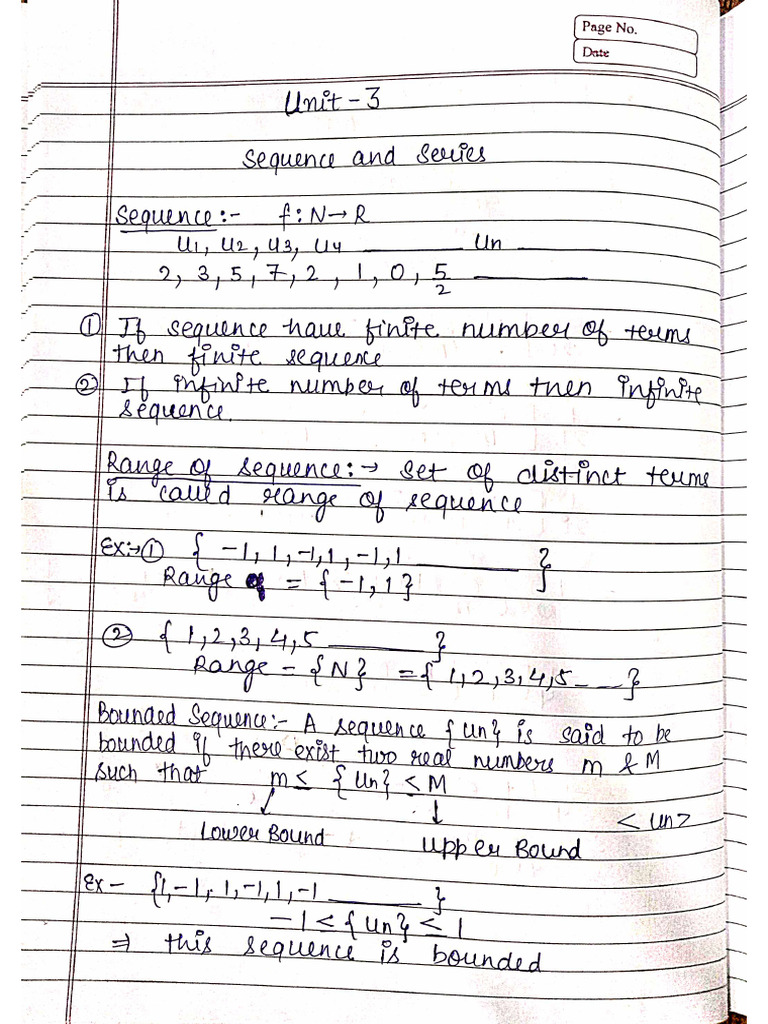 Page No.
Date
Unit - 3
Sequence and Series
Sequence :- f : N → R
u1, u2, u3, u4 ________ un ________
2, 3, 5, 7, 2, 1, 0, 5/2 ________
① If sequence have finite number of terms
then finite sequence
② If infinite number of terms then infinite
sequence.
Range of sequence: → set of distinct terms
is called range of sequence
Ex:→ ① { -1, 1, -1, 1, -1, 1 ________ }
Range = { -1, 1 }
② { 1, 2, 3, 4, 5 ________ }
Range = {N} = { 1, 2, 3, 4, 5 - __ }
Bounded Sequence:- A sequence {un} is said to be
bounded if there exist two real numbers m & M
such that m ≤ {un} ≤ M
< un >
Lower Bound Upper Bound
Ex - {1, -1, 1, -1, 1, -1 ________ }
-1 ≤ {un} ≤ 1
⇒ this sequence is bounded